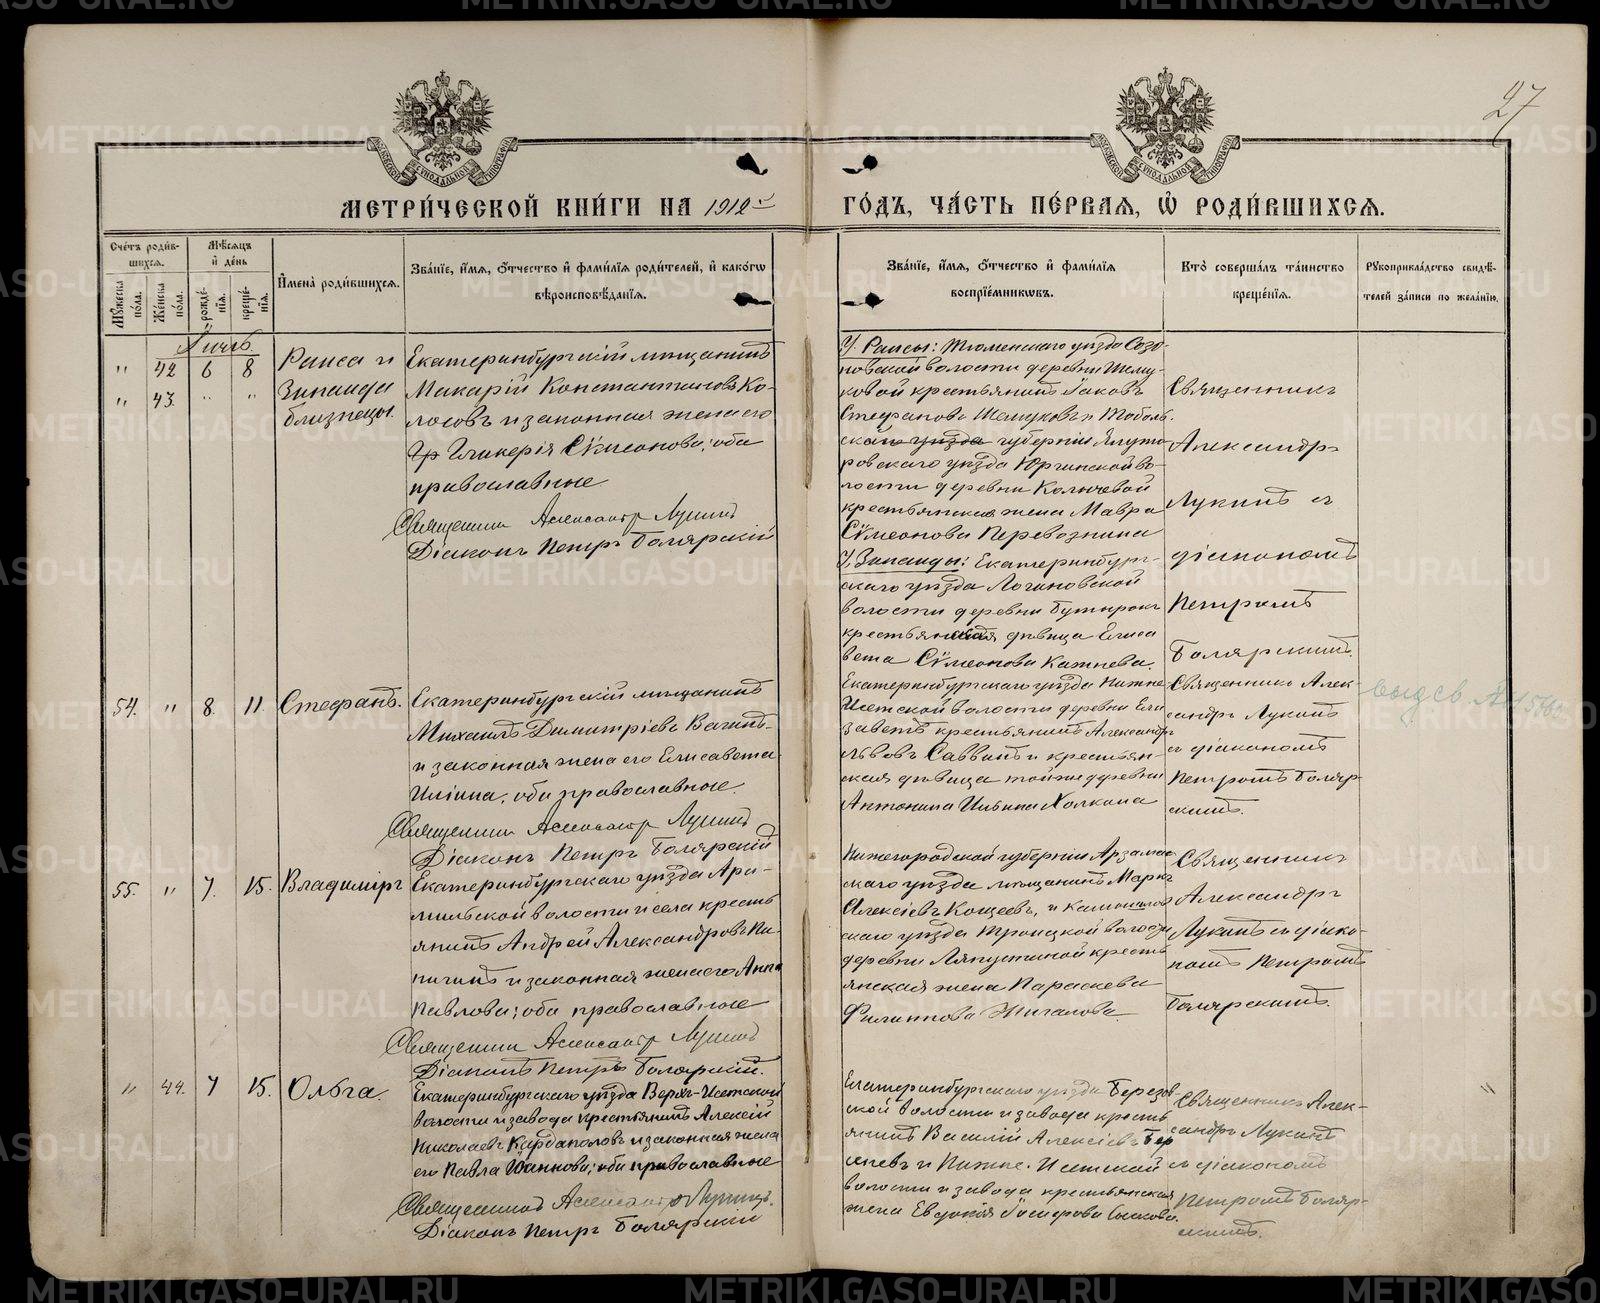 27
МЕТРИ́ЧЕСКОЙ КНИ́ГИ НА 1912 й
ГО́ДЪ, ЧА́СТЬ ПЕ́РВАЯ, Ѡ҆ РОДИ́ВШИХСЯ.
Сче́тъ роди́вшихся.
Мѣ́сяцъ и҆ де́нь
Мꙋ́жеска по́ла.
Же́нска по́ла.
рожде́нїя.
креще́нїя.
И҆мена̀ роди́вшихся.
Зва́нїе, и҆́мя, ѻ҆́тчество и҆ фами́лїя роди́телей, и҆ како́гѡ
вѣроисповѣ́данїя.
Зва́нїе, и҆́мя, ѻ҆́тчество и҆ фами́лїя
воспрїе́мникѡвъ.
Кто̀ соверша́лъ та́инство
креще́нїя.
Рꙋкоприкла́дство свидѣ́-
телей за́писи по жела́нїю.
Іюль
" 42 6 8
" 43. " "
Раиса и
Зинаида
близнецы.
Екатеринбургскій мѣщанинъ
Макарій Константиновъ Ко-
лосовъ и законная жена его
Гликерія Сѵмеонова; оба
православные
Священникъ Александръ Лукинъ
Діаконъ Петръ Боляр­скій
У Раисы: Тюменскаго уѣзда Созо-
новской волости деревни Шешу-
ковой крестьянинъ Іаковъ
Стефановъ Шешуковъ и Тоболь-
ской уѣзда губерніи Ялуто-
ровскаго уѣзда Юргинской во-
лости деревни Ключевой
крестьянская жена Мавра
Сѵмеонова Перевозкина
У Зинаиды: Екатеринбург-
скаго уѣзда Логиновской
волости деревни Бутырокъ
крестьянская дѣвица Елиса
вета Сѵмеонова Кажнева.
Священникъ
Александръ
Лукинъ съ
діакономъ
Петромъ
Болярскимъ.
54. " 8. 11. Стефанъ.
Екатеринбургскій мѣщанинъ
Михаилъ Димитріевъ Вагинъ
и законная жена его Елисавета
Иліина, оба православные.
Священникъ Александръ Лукинъ
Діаконъ Петръ Болярскій
Екатеринбургскаго уѣзда Нижне-
Исетской волости деревни Ели
заветъ крестьянинъ Александръ
Львовъ Саввинъ и крестьян-
ская дѣвица той же деревни
Антонина Ильина Холкина
Священникъ Алек-
сандръ Лукинъ
съ діакономъ
Петромъ Боляр-
скимъ.
55. " 7. 15. Владиміръ
Екатеринбургскаго уѣзда Ара-
мильской волости и села кресть
янинъ Андрей Александровъ
и законная жена его Анна
Павлова; оба православные
Священникъ Александръ Лукинъ
Діаконъ Петръ Болярскій.
Нижегородской губерніи Арзамас
скаго уѣзда мѣщанинъ Маркъ
Алексіевъ Кощеевъ, и Камышлов
скаго уѣзда Троицкой волости
деревни Ляпустиной кресть
янская жена Параскева
Филиппова Жигалова.
Священникъ
Александръ
Лукинъ съ діако-
номъ Петромъ
Болярскимъ.
" 44. 7 15. Ольга.
Екатеринбургскаго уѣзда Верхъ-Исетской
волости и завода крестьянинъ Алексій
Николаевъ Кардаполовъ и законная жена
его Павла Іоаннова; оба православные
Священникъ Александръ Лукинъ.
Діаконъ Петръ Болярскій
Екатеринбургскаго уѣзда Березов-
ской волости и завода кресть
янинъ Василій Алексіевъ
и Нижне-Исетской
волости и завода крестьянская
жена Евдокія
Священникъ Алек-
сандръ Лукинъ
съ діакономъ
Петромъ Боляр-
скимъ.
METRIKI.GASO-URAL.RU